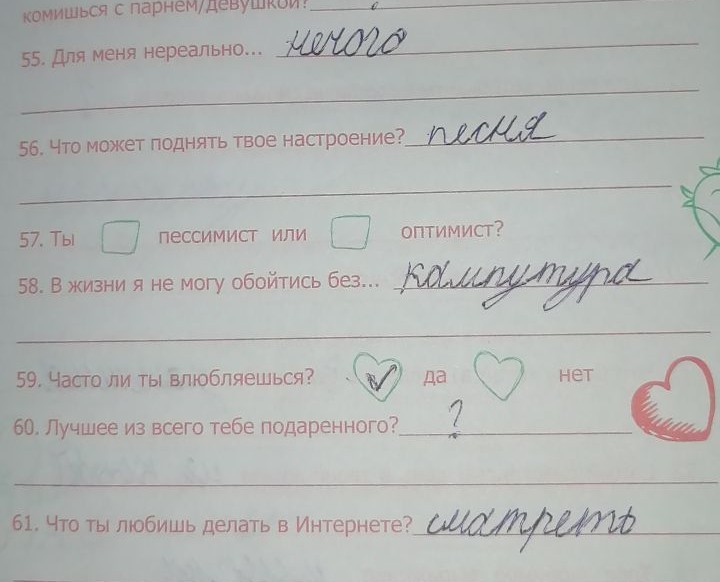 комишься с парнем/девушкой?
55. Для меня нереально... нечого
56. Что может поднять твое настроение? песня
57. Ты пессимист или оптимист?
58. В жизни я не могу обойтись без... кампутура
59. Часто ли ты влюбляешься? да нет
60. Лучшее из всего тебе подаренного? ?
61. Что ты любишь делать в Интернете? сматреть